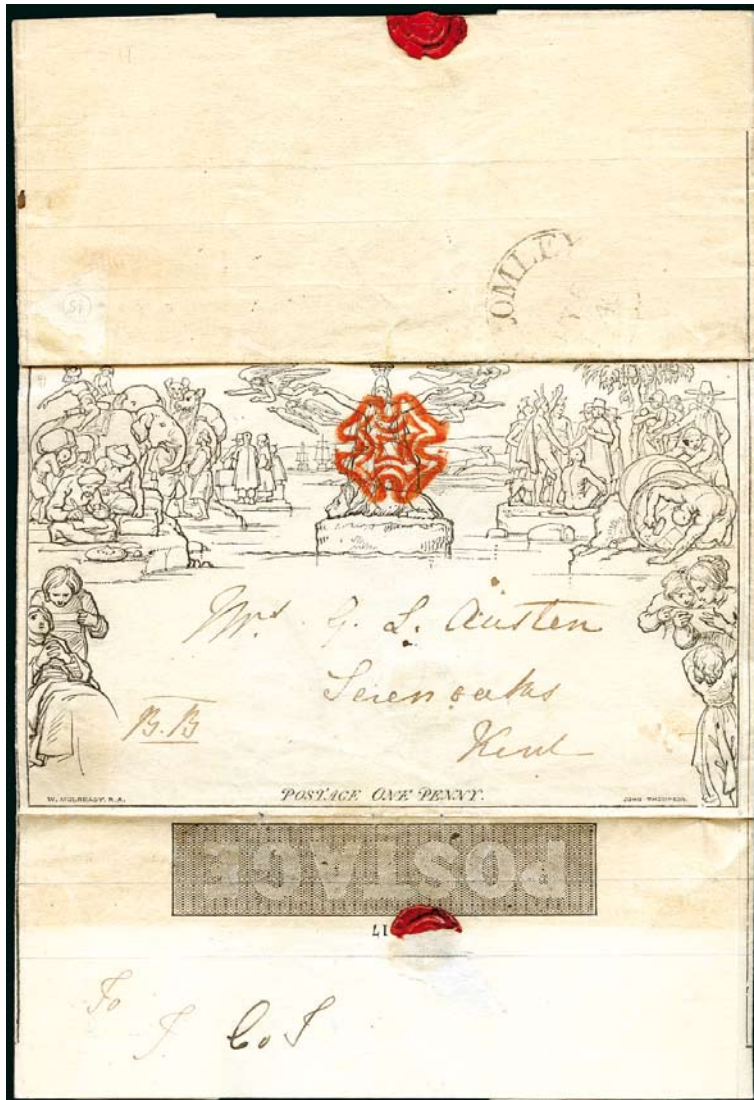 OMLEY
Mrs G. L. Austen
Sevenoaks
B.B
Kent
W. MULREADY. R.A. POSTAGE ONE PENNY. JOHN THOMPSON.
POSTAGE
17
To